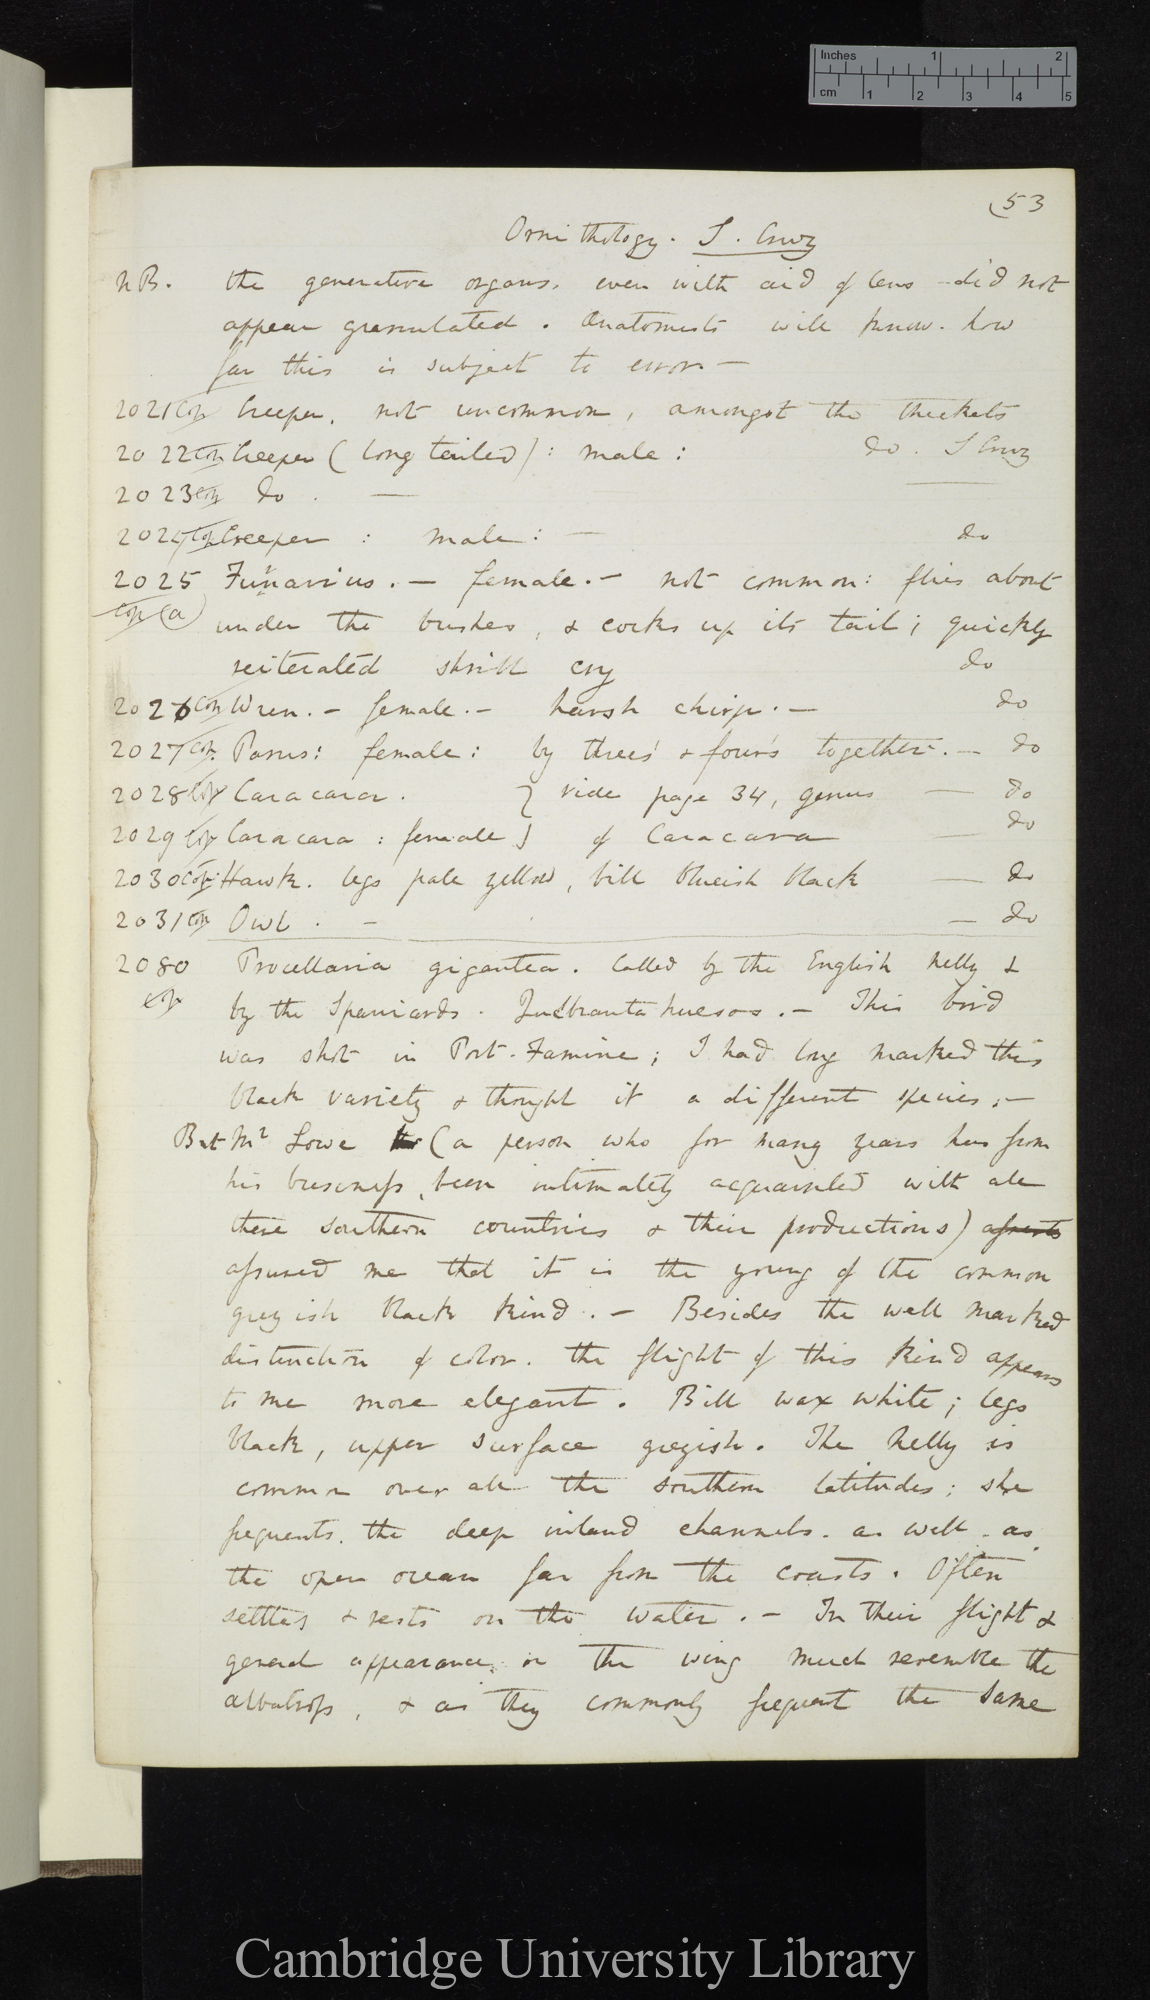 Inches 1 2
cm 1 2 3 4 5
(53
Ornithology. S. Cruz
NB. the generative organs, even with aid of lens did not
appear granulated. Anatomists will know. how
far this is subject to error —
2021 Cop Creeper, not uncommon, amongst the thickets
2022 Cop Creeper (long tailed): male: do. S Cruz
2023 Cop do. —
2024 Cop Creeper: male: — do
2025 Furnarius. — female. — not common: flies about
Cop (a) under the bushes, & cocks up its tail; quickly
reiterated shrill cry do
2026 Cop Wren. — female. — harsh chirp. — do
2027 Cop. Parus: female: by threes & fours together. — do
2028 Cop Caracara. } vide page 34, genus — do
2029 Cop Caracara: female } of Caracara — do
2030 Cop. Hawk. legs pale yellow, bill blueish black — do
2031 Cop Owl. — — do
2080 Procellaria gigantea. Called by the English Nelly &
Cop by the Spaniards. Quebranta huesos. — This bird
was shot in Port. Famine; I had long marked this
black variety & thought it a different species. —
But Mr Lowe (a person who for many years has from
his business, been intimately acquainted with all
these southern countries & their productions) asserts
assured me that it is the young of the common
greyish black kind. — Besides the well marked
distinction of color. the flight of this kind appears
to me more elegant. Bill wax white; legs
black, upper surface greyish. The Nelly is
common over all the southern latitudes; she
frequents. the deep inland channels. as well. as
the open ocean far from the coasts. Often
settles & rests on the water. — In their flight &
general appearance on the wing much resemble the
albatross, & as they commonly frequent the same
Cambridge University Library